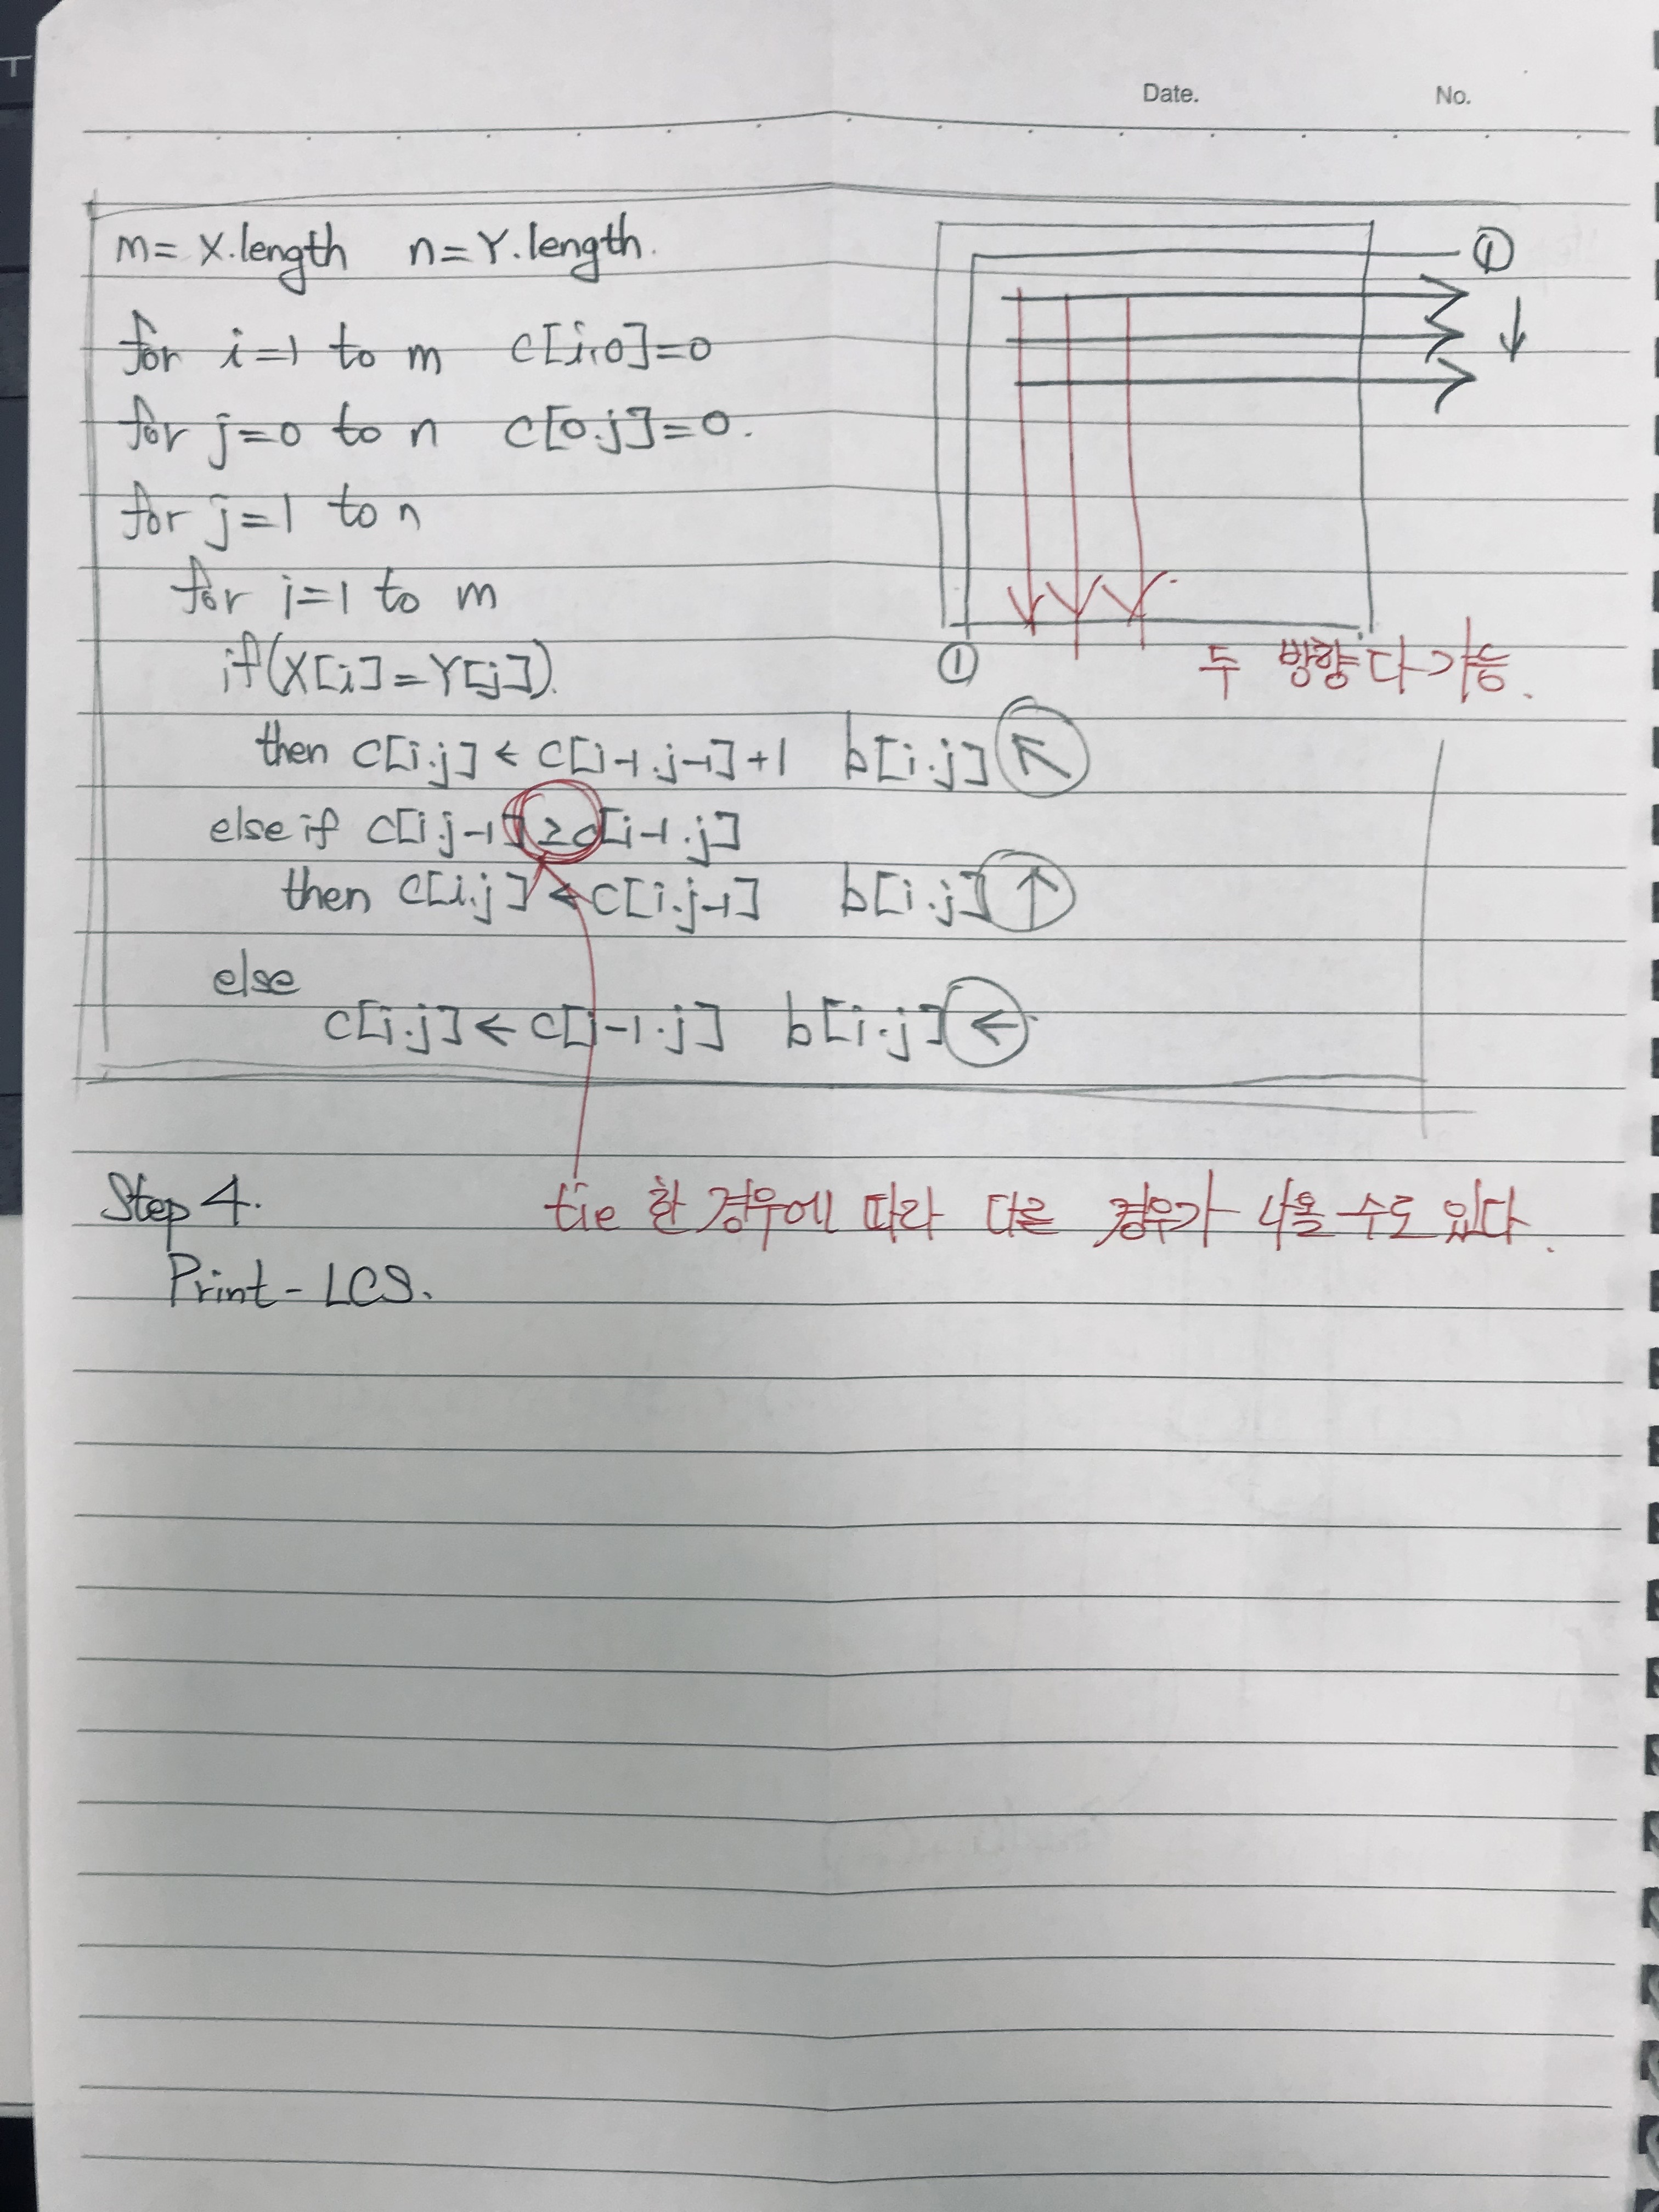 Date. No.
m= X.length n=Y.length.
for i=1 to m c[i,0]=0
for j=0 to n c[0.j]=0.
for j=1 to n
for i=1 to m
if(X[i]=Y[j])
then c[i.j] ← c[i-1.j-1]+1 b[i.j] ↖
else if c[i.j-1] ≥ c[i-1.j]
then c[i.j] ← c[i.j-1] b[i.j] ↑
else
c[i.j] ← c[i-1.j] b[i.j] ←
①
①
두 방향 다 가능.
Step 4.
tie 한 경우에 따라 다른 경우가 나올 수도 있다.
Print - LCS.